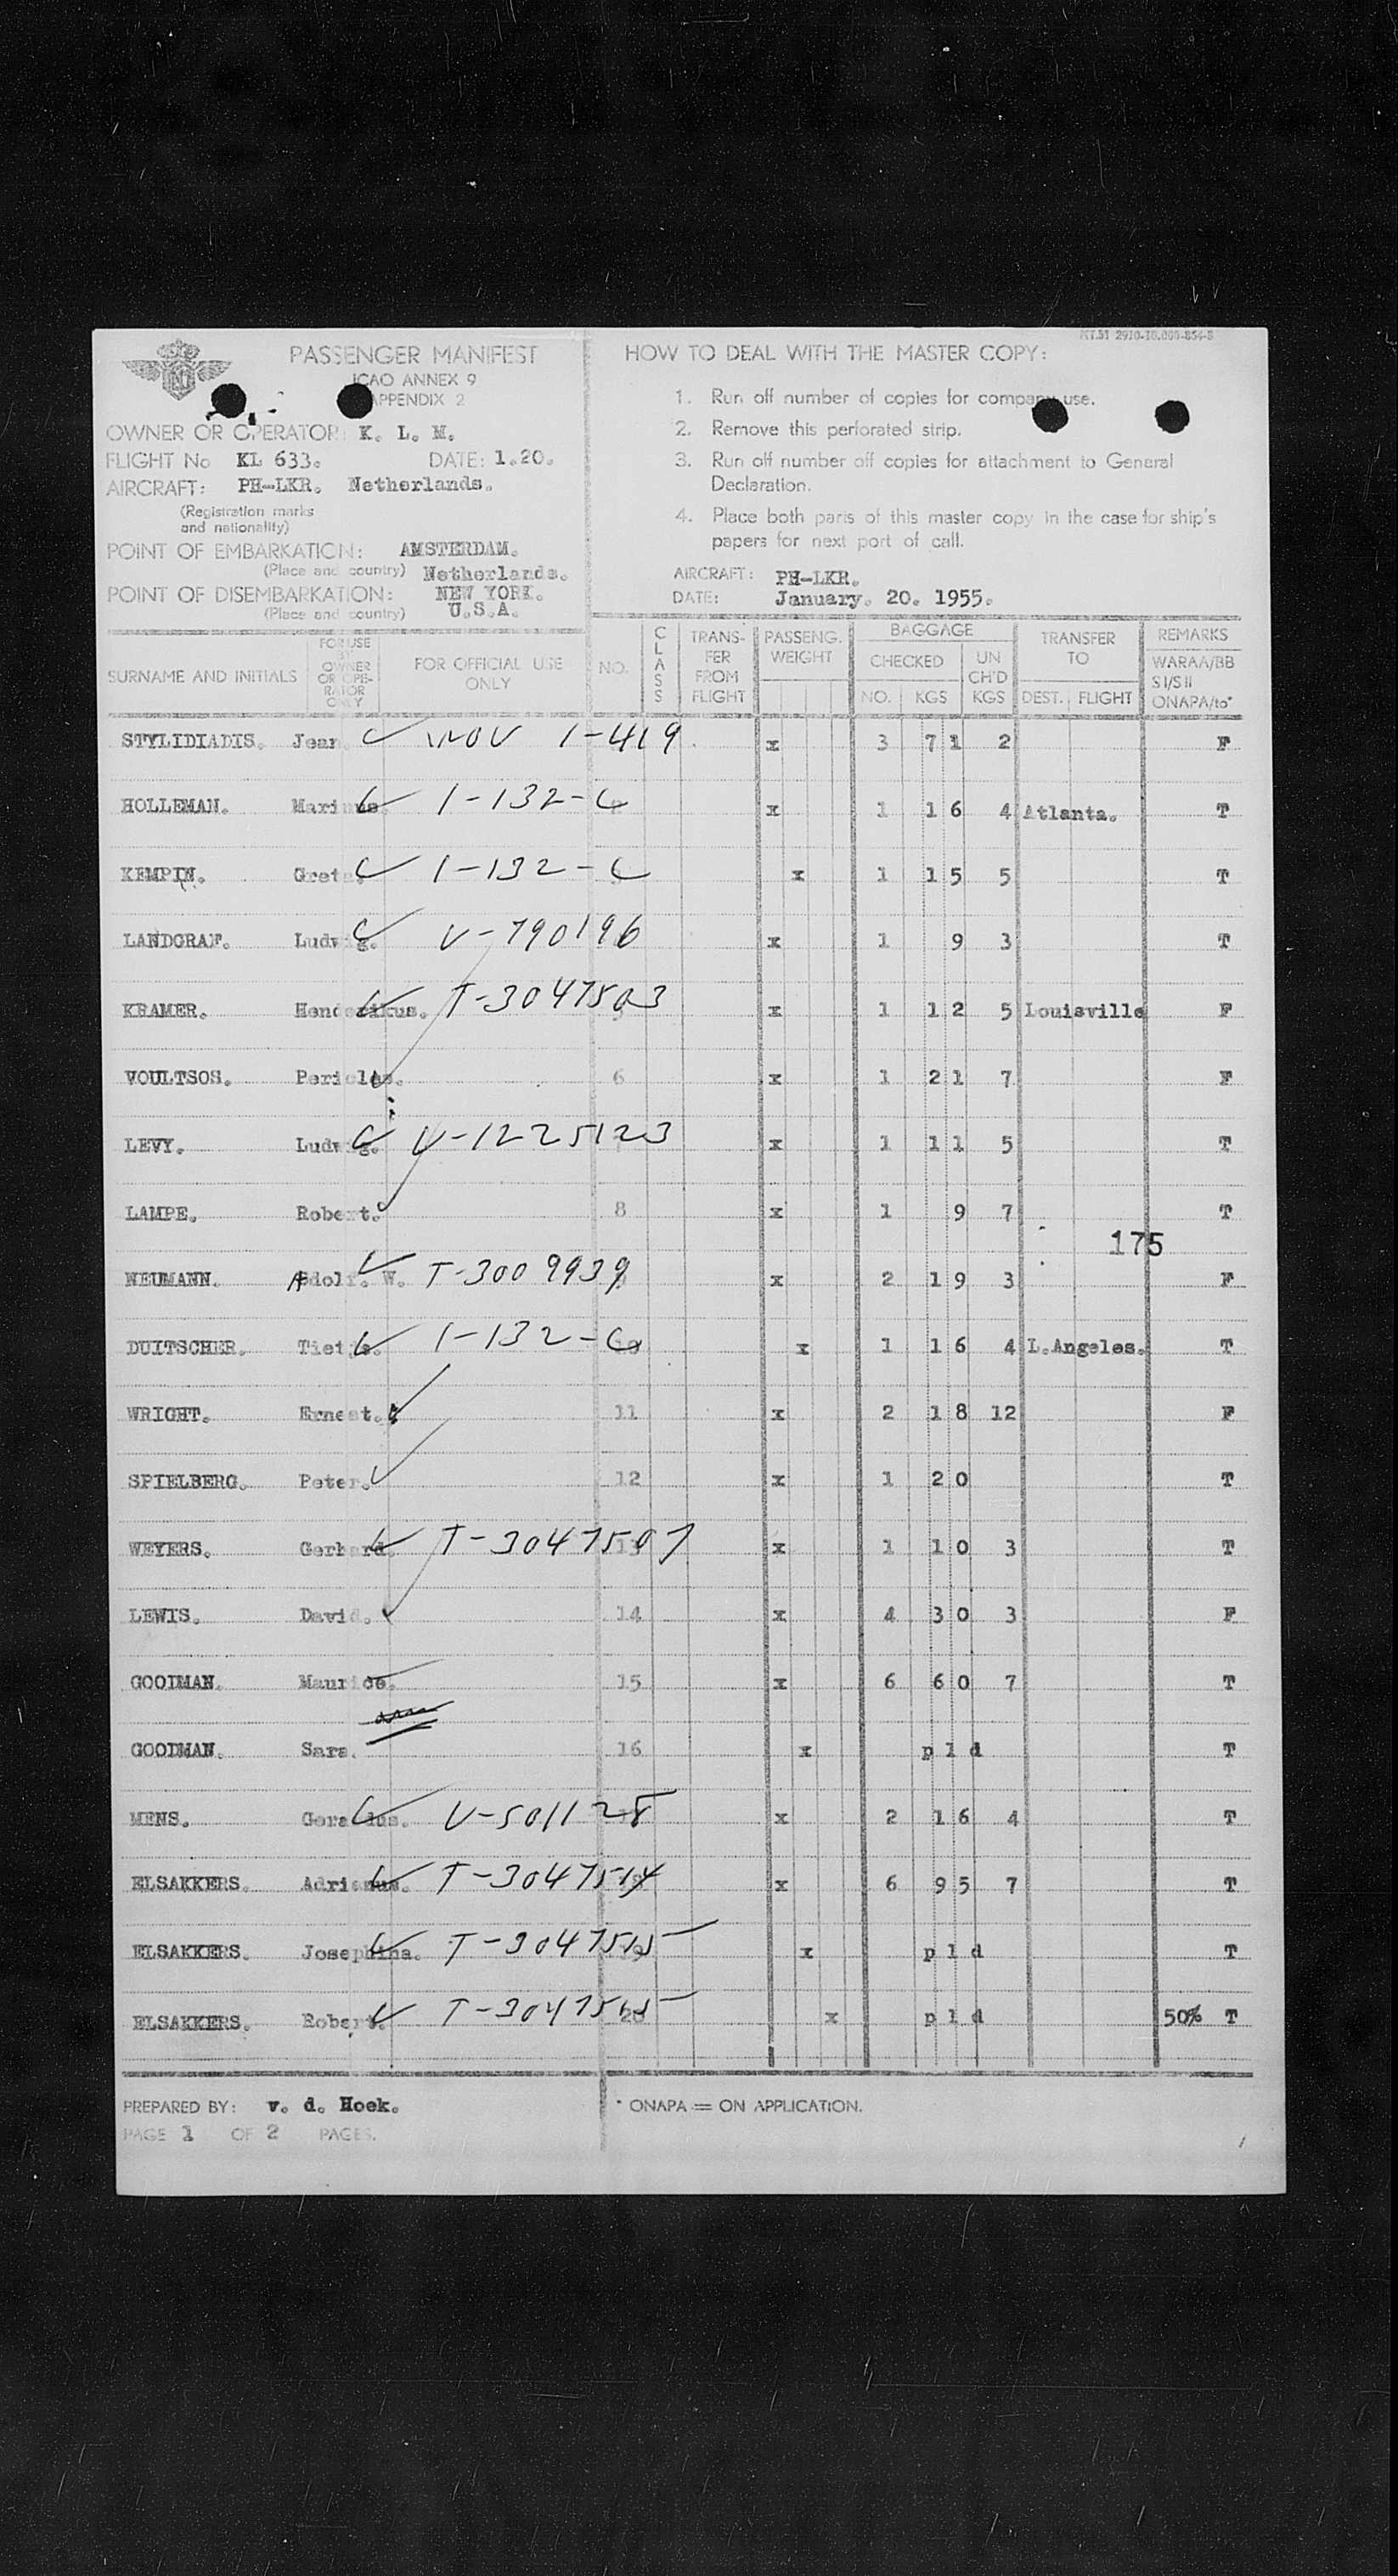 KT.51 2910-10.000-854-S
PASSENGER MANIFEST
ICAO ANNEX 9
APPENDIX 2
OWNER OR OPERATOR: K. L. M.
FLIGHT No KL 633. DATE: 1.20.
AIRCRAFT: PH-LKR. Netherlands.
(Registration marks
and nationality)
POINT OF EMBARKATION: AMSTERDAM.
(Place and country) Netherlands.
POINT OF DISEMBARKATION: NEW YORK.
(Place and country) U.S.A.
HOW TO DEAL WITH THE MASTER COPY:
1. Run off number of copies for company use.
2. Remove this perforated strip.
3. Run off number off copies for attachment to General
Declaration.
4. Place both parts of this master copy in the case for ship's
papers for next port of call.
AIRCRAFT: PH-LKR.
DATE: January. 20. 1955.
SURNAME AND INITIALS FOR USE BY OWNER OR OPE-RATOR ONLY FOR OFFICIAL USE ONLY NO. CLASS TRANS-FER FROM FLIGHT PASSENG. WEIGHT BAGGAGE CHECKED NO. KGS UN CH'D KGS TRANSFER TO DEST. FLIGHT REMARKS WARAA/BB SI/SII ONAPA/to*
STYLIDIADIS. Jean 1-419 x 3 71 2 F
HOLLEMAN. Marinus. 1-132-C x 1 16 4 Atlanta. T
KEMPIN. Greta. 1-132-C x 1 15 5 T
LANDGRAF. Ludwig. V-790196 x 1 9 3 T
KRAMER. Henderikus. T-3047503 x 1 12 5 Louisville F
VOULTSOS. Pericles. 6 x 1 21 7 F
LEVY. Ludwig. V-1225123 x 1 11 5 T
LAMPE. Robert. 8 x 1 9 7 T
175
NEUMANN. Adolf. W. T-3009939 x 2 19 3 F
DUITSCHER. Tietje. 1-132-C 10 x 1 16 4 L.Angeles. T
WRIGHT. Ernest. 11 x 2 18 12 F
SPIELBERG. Peter. 12 x 1 20 T
WEYERS. Gerhard. T-3047507 13 x 1 10 3 T
LEWIS. David. 14 x 4 30 3 F
GOODMAN. Maurice. 15 x 6 60 7 T
GOODMAN. Sara. 16 x pld T
MENS. Gerardus. V-501128 x 2 16 4 T
ELSAKKERS. Adrianus. T-3047514 x 6 95 7 T
ELSAKKERS. Josephina. T-3047515 x pld T
ELSAKKERS. Robert. 20 x pld 50% T
PREPARED BY: v. d. Hoek.
* ONAPA = ON APPLICATION.
PAGE 1 OF 2 PAGES.